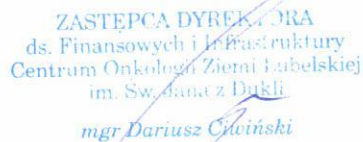 ZASTĘPCA DYREKTORA
ds. Finansowych i Infrastruktury
Centrum Onkologii Ziemi Lubelskiej
im. Św. Jana z Dukli
mgr Dariusz Cywiński